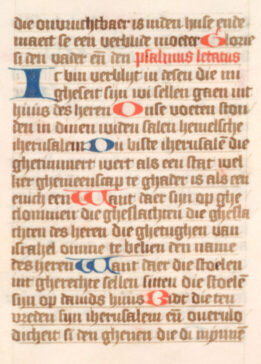 die onvruchtbaer is inden huse ende
maect se een verblide moeder Glorie
si den vader en̄ den psalmus letatus
Ic bin verblijt in desen die mi
gheseit sijn wi sellen gaen int
huus des heren Onse voeten ston
den in dinen widen salen hemelsche
iherusalem Du biste iherusalē die
ghetimmert wert als een stat wel
ker ghemeenscap te gader is als een
enich een Want daer sijn op ghe
clommen die gheslachten die ghesla
chten des heren die ghetughen van
israhel omme te belien den name
des heren Want daer die stoelen
int gherechte sellen sitten die stoelē
sijn op dauids huus Bidt die ten
vreden sijn iherusalem en̄ overulo
dicheit si den ghenen die di mynnē